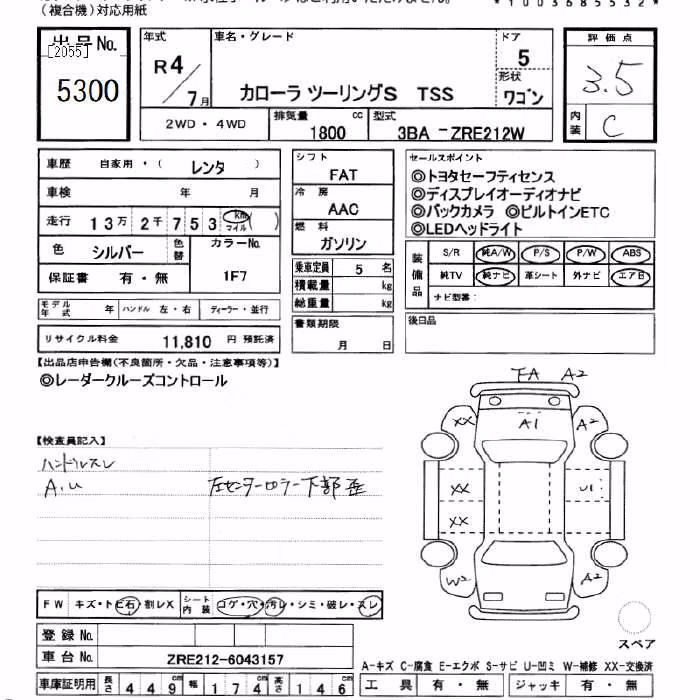 (複合機)対応用紙
*1003685532*
出品No.
[2055]
5300
年式
R4/7月
車名・グレード
カローラ ツーリングS TSS
ドア
5
形状
ワゴン
2WD・4WD
排気量
1800 cc
型式
3BA-ZRE212W
評価点
3.5
内装
C
車歴 自家用・( レンタ )
車検 年 月
走行 13万2千753 km マイル ( )
色 シルバー
色替
カラーNo.
1F7
保証書 有・無
モデル年式 年 ハンドル 左・右 ディーラー・並行
リサイクル料金 11,810 円 預託済
シフト
FAT
冷房
AAC
燃料
ガソリン
乗車定員 5 名
積載量 kg
総重量 kg
書類期限
月 日
セールスポイント
◎トヨタセーフティセンス
◎ディスプレイオーディオナビ
◎バックカメラ ◎ビルトインETC
◎LEDヘッドライト
装備品
S/R 純A/W P/S P/W ABS
純TV 純ナビ 革シート 外ナビ エアB
ナビ型番:
後日品
【出品店申告欄(不良箇所・欠品・注意事項等)】
◎レーダークルーズコントロール
【検査員記入】
ハンドルスレ
A.U
左センターピラー下部歪
FA A2
XX A1 A2
XX
XX
W2 A2
スペア
FW キズ・トビ石・割レX
シート内装 コゲ・穴・汚レ・シミ・破レ・スレ
登録No.
車台No. ZRE212-6043157
車庫証明用 長さ 449 cm 幅 174 cm 高さ 146 cm
A-キズ C-腐食 E-エクボ S-サビ U-凹ミ W-補修 XX-交換済
工具 有・無 ジャッキ 有・無